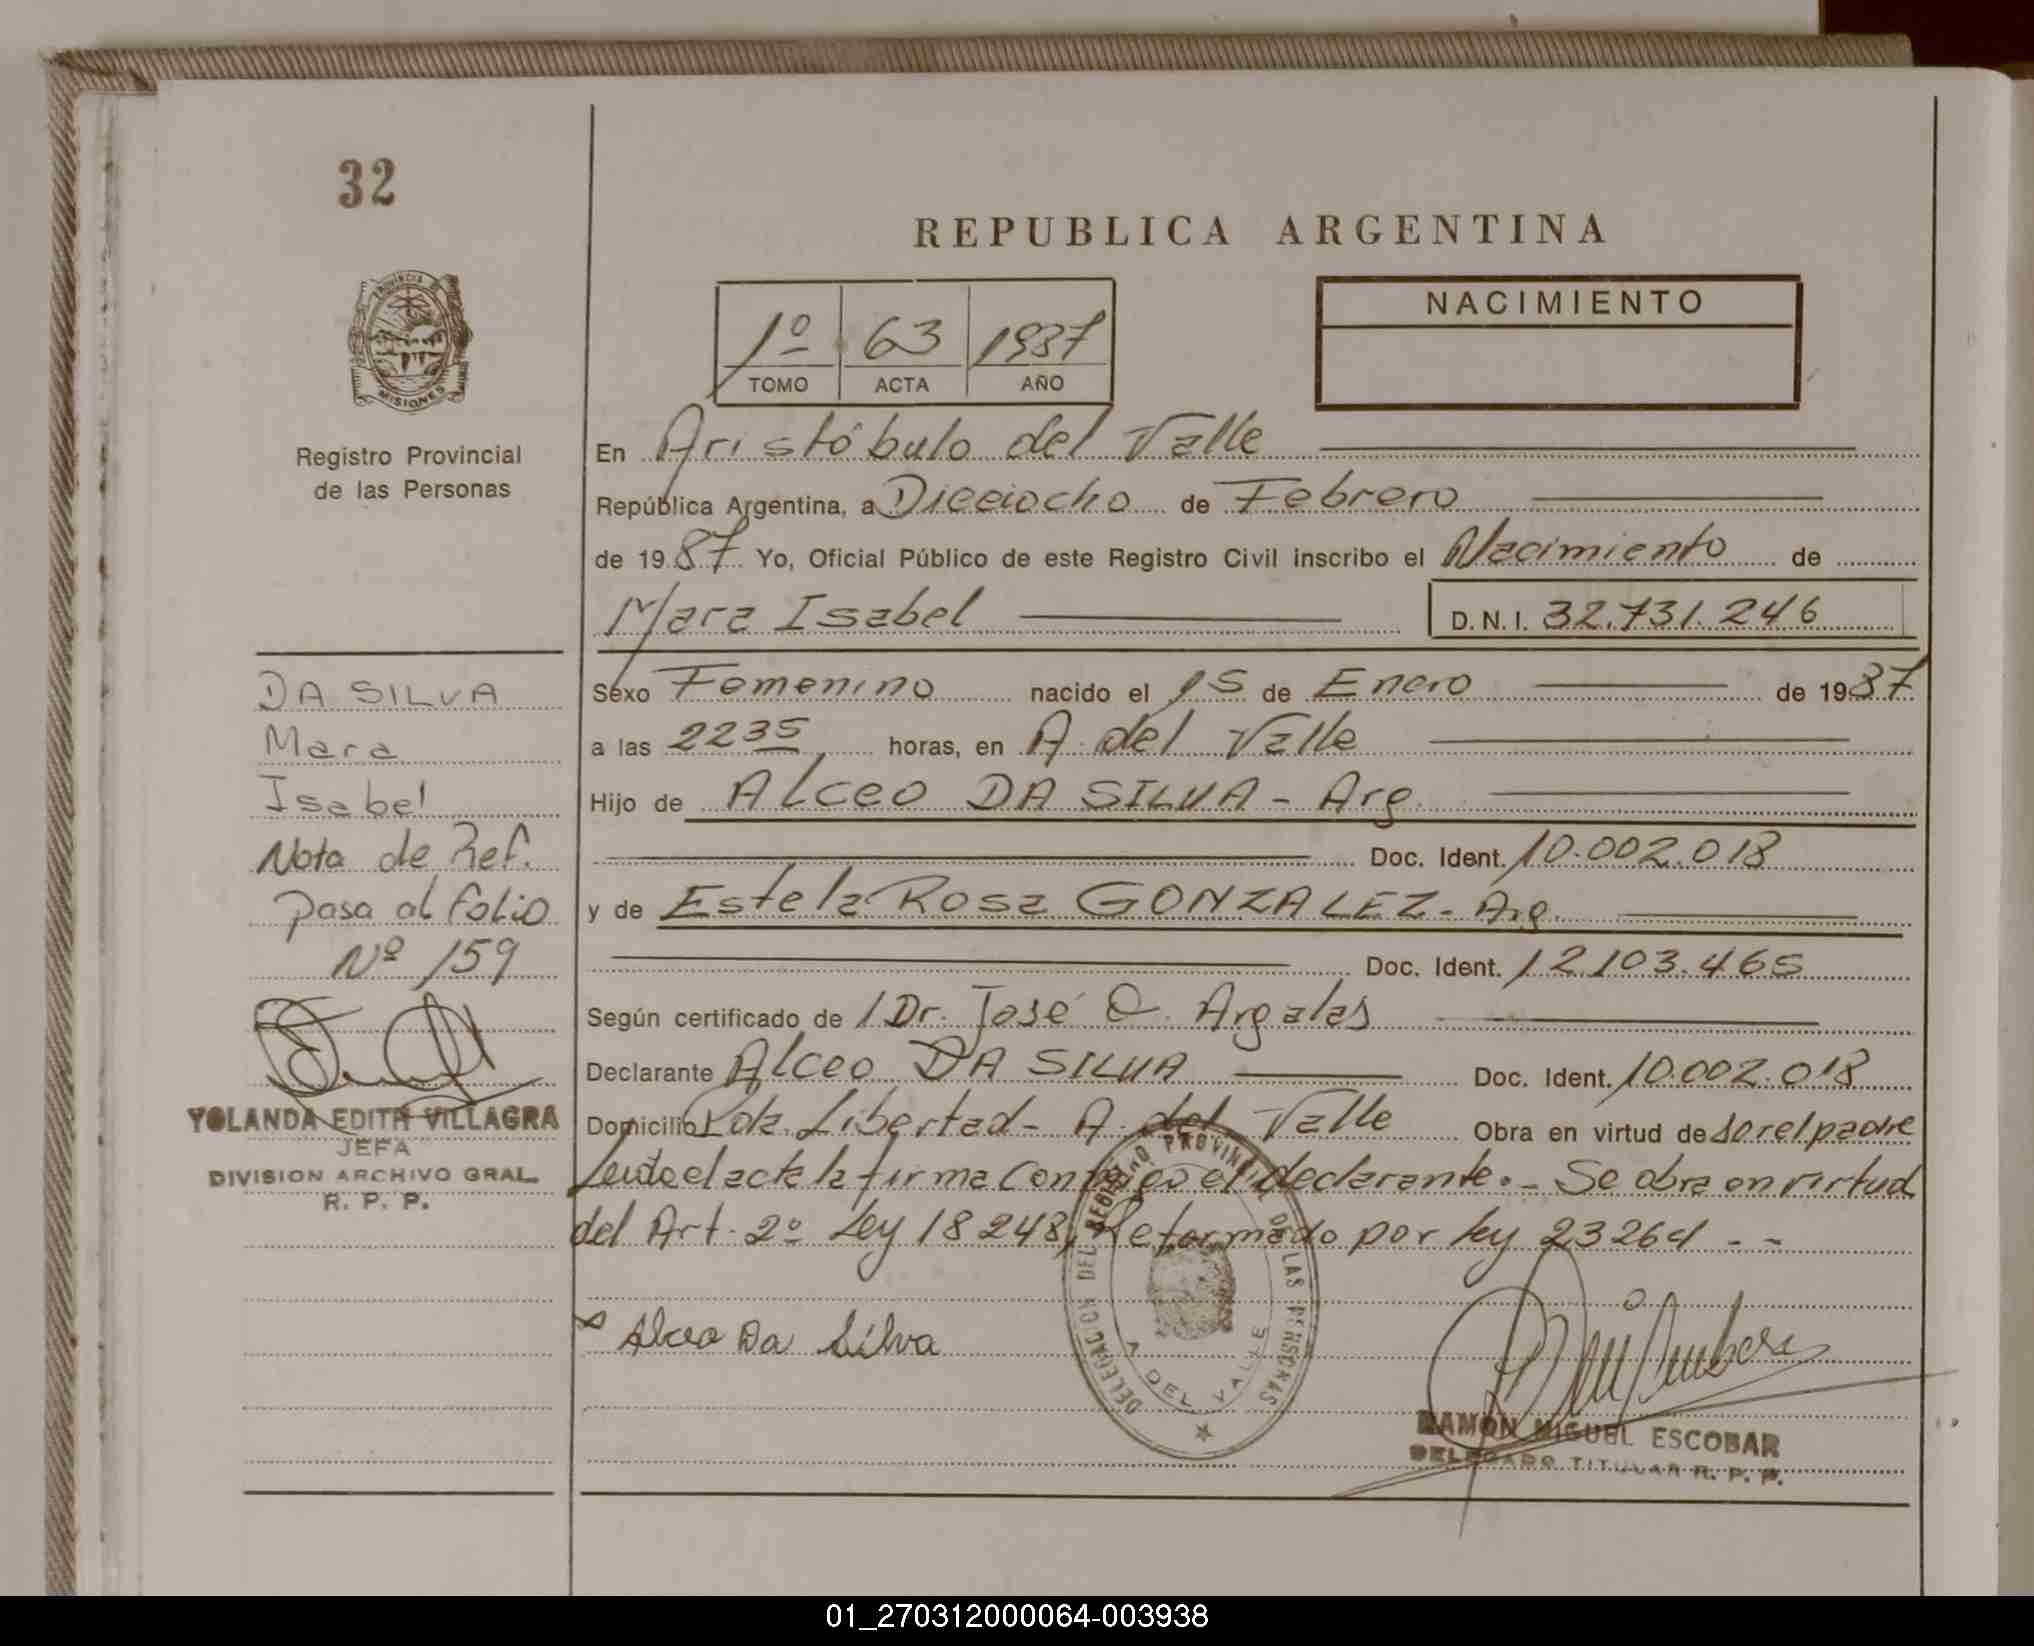 32
REPUBLICA ARGENTINA
PROVINCIA DE
MISIONES
Registro Provincial
de las Personas
1º 63 1987
TOMO ACTA AÑO
NACIMIENTO
En Aristóbulo del Valle
República Argentina, a Dieciocho de Febrero
de 1987 Yo, Oficial Público de este Registro Civil inscribo el Nacimiento de
Mara Isabel D.N.I. 32.731.246
Sexo Femenino nacido el 15 de Enero de 1987
a las 2235 horas, en A. del Valle
Hijo de Alceo DA SILVA - Arg.
Doc. Ident. 10.002.018
y de Estela Rosa GONZALEZ - Arg.
Doc. Ident. 12.103.465
Según certificado de / Dr. José O. Argalas
Declarante Alceo DA SILVA Doc. Ident. 10.002.018
Domicilio Pda. Libertad - A. del Valle Obra en virtud de ser el padre
Leida el acta la firma conmigo el declarante.- Se obra en virtud
del Art. 2º Ley 18248, Reformado por ley 23264 - -
Alceo Da Silva
DELEGACION DEL REGISTRO PROVINCIAL DE LAS PERSONAS
A DEL VALLE
RAMON MIGUEL ESCOBAR
DELEGADO TITULAR R. P. P.
DA SILVA
Mara
Isabel
Nota de Ref.
pasa al folio
Nº 159
YOLANDA EDITH VILLAGRA
JEFA
DIVISION ARCHIVO GRAL.
R. P. P.
01_270312000064-003938